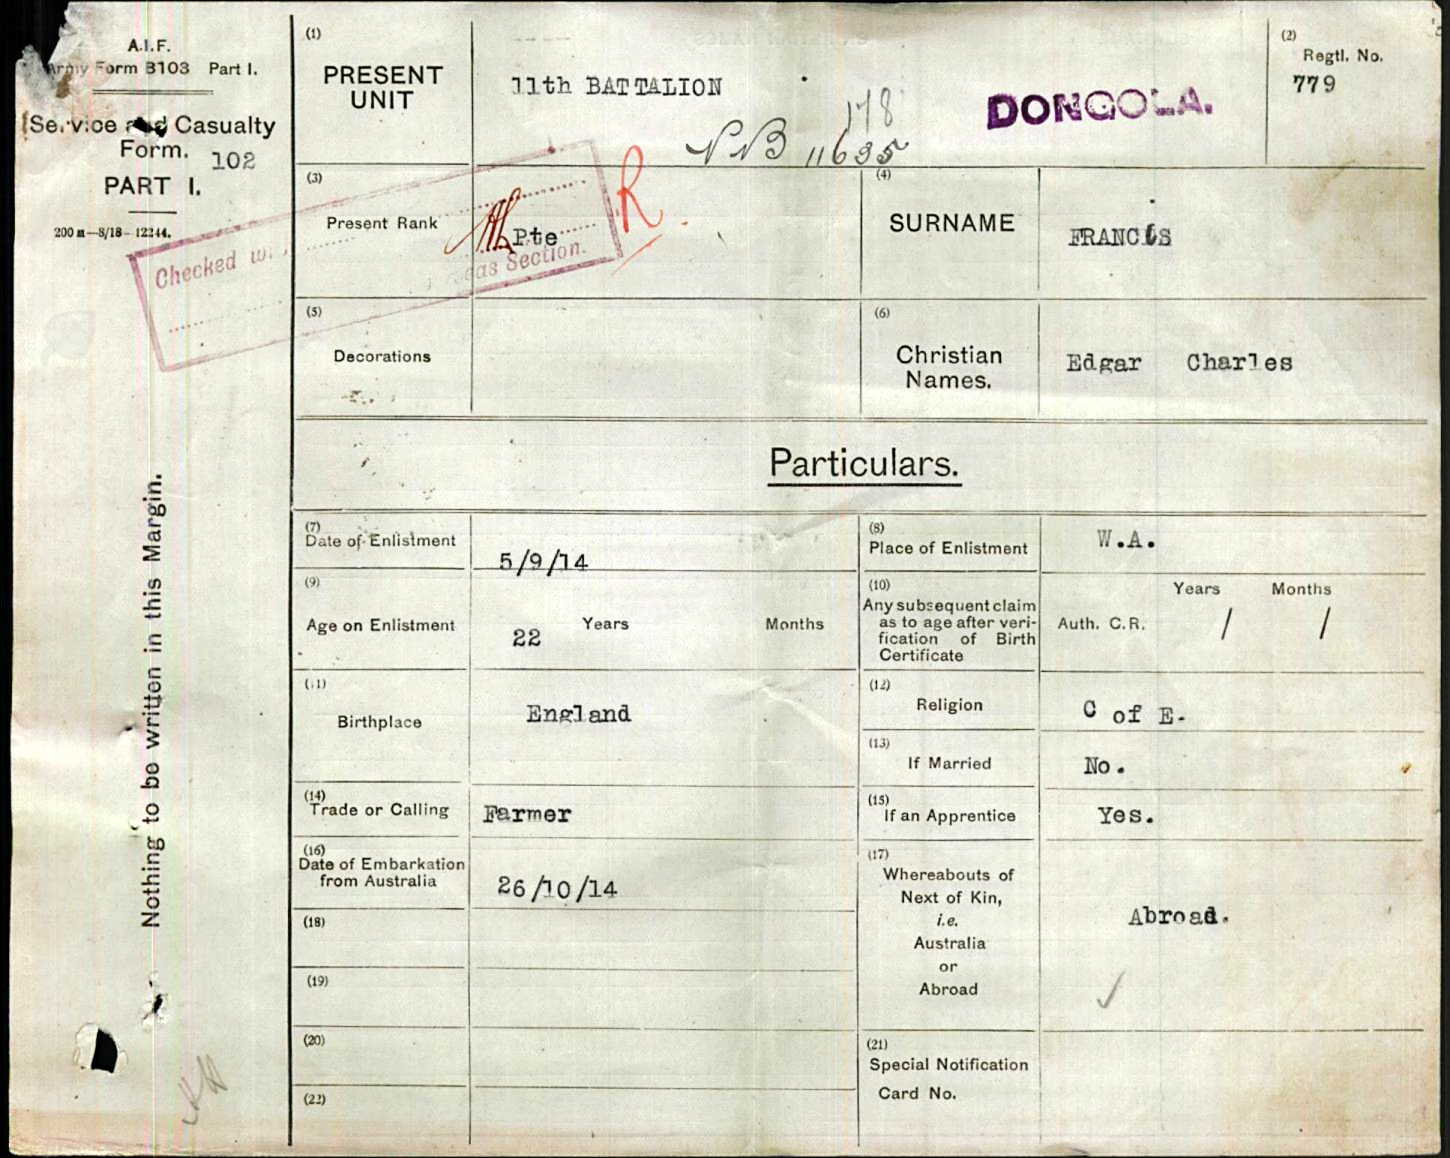 A.I.F.
Army Form B103 Part I.
Service and Casualty
Form. 102
PART I.
200 m—8/18—12244.
Nothing to be written in this Margin.
(1)
PRESENT
UNIT
11th BATTALION
178
NB 11635
DONGOLA.
(2)
Regtl. No.
779
(3)
Present Rank
Pte
R
Checked
Section.
(4)
SURNAME
FRANCIS
(5)
Decorations
(6)
Christian
Names.
Edgar Charles
Particulars.
(7)
Date of Enlistment
5/9/14
(8)
Place of Enlistment
W.A.
(9)
Age on Enlistment
22 Years Months
(10)
Any subsequent claim
as to age after veri-
fication of Birth
Certificate
Auth. C.R. Years / Months /
(11)
Birthplace
England
(12)
Religion
C of E.
(13)
If Married
No.
(14)
Trade or Calling
Farmer
(15)
If an Apprentice
Yes.
(16)
Date of Embarkation
from Australia
26/10/14
(17)
Whereabouts of
Next of Kin,
i.e.
Australia
or
Abroad
Abroad.
(18)
(19)
(20)
(21)
Special Notification
Card No.
(22)